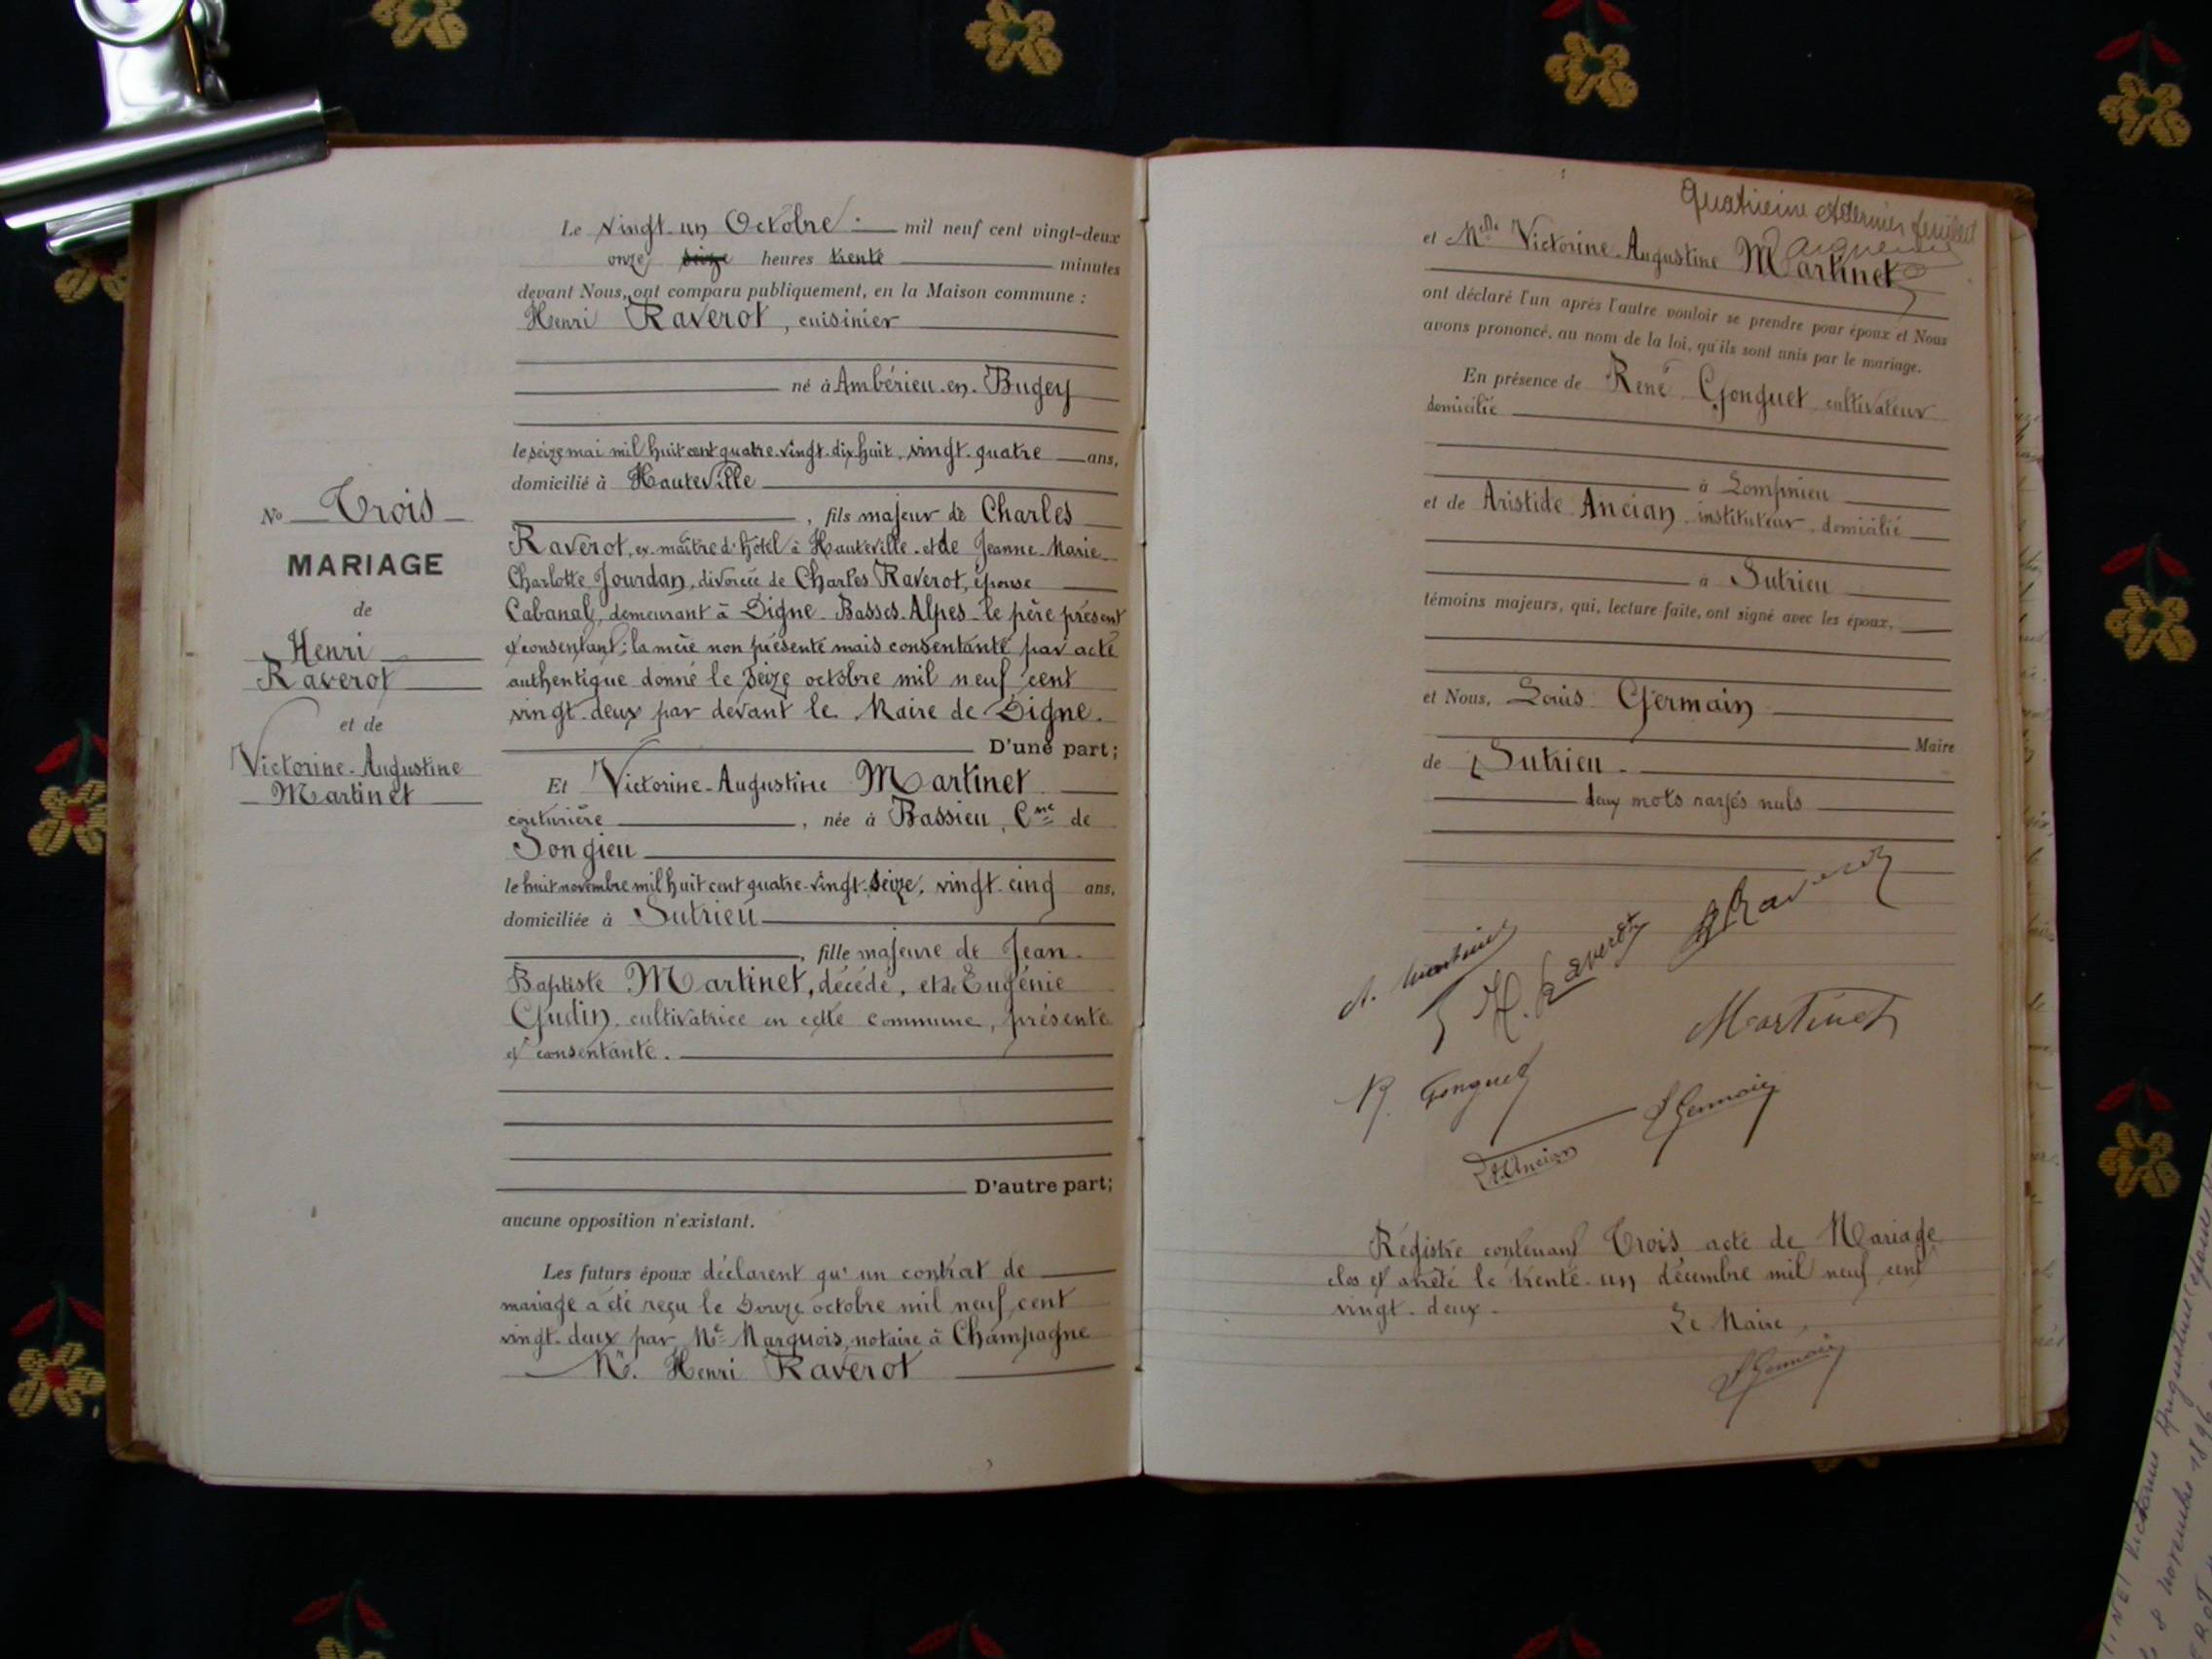 Le vingt-un Octobre mil neuf cent vingt-deux
onze seize heures trente minutes
devant Nous, ont comparu publiquement, en la Maison commune :
Henri Raverot, cuisinier
né à Ambérieu-en-Bugey
le seize mai mil huit cent quatre-vingt-dix huit, vingt-quatre ans,
domicilié à Hauteville
, fils majeur de Charles
Raverot, ex-maître d'hôtel à Hauteville et de Jeanne-Marie-
Charlotte Jourdan, divorcée de Charles Raverot, épouse
Cabanal, demeurant à Digne Basses-Alpes - le père présent
et consentant ; la mère non présente mais consentante par acte
authentique donné le seize octobre mil neuf cent
vingt-deux par devant le Maire de Digne.
D'une part;
Et Victorine-Augustine Martinet
couturière , née à Bassieu, Cne de
Songieu
le huit novembre mil huit cent quatre-vingt-seize, vingt-cinq ans,
domiciliée à Sutrieu
, fille majeure de Jean-
Baptiste Martinet, décédé, et de Eugénie
Gudin, cultivatrice en cette commune, présente
et consentante.
D'autre part;
aucune opposition n'existant.
Les futurs époux déclarent qu'un contrat de
mariage a été reçu le douze octobre mil neuf cent
vingt-deux par Me Marquois, notaire à Champagne
Mr. Henri Raverot
No Trois
MARIAGE
de
Henri
Raverot
et de
Victorine-Augustine
Martinet
Quatrième et dernier feuillet
et Melle Victorine-Augustine Martinet
ont déclaré l'un après l'autre vouloir se prendre pour époux et Nous
avons prononcé, au nom de la loi, qu'ils sont unis par le mariage.
En présence de René Gonguet, cultivateur
domicilié
à Lompnieu
et de Aristide Ancian, instituteur, domicilié
à Sutrieu
témoins majeurs, qui, lecture faite, ont signé avec les époux,
et Nous, Louis Germain
Maire
de Sutrieu.
deux mots rayés nuls
A. Martinet H. Raverot Raverot
Martinet
R. Gonguet L Germain
A. Ancian
Registre contenant Trois acte de Mariage
clos et arrêté le trente-un décembre mil neuf cent
vingt-deux.
Le Maire,
L Germain
8 novembre 1896